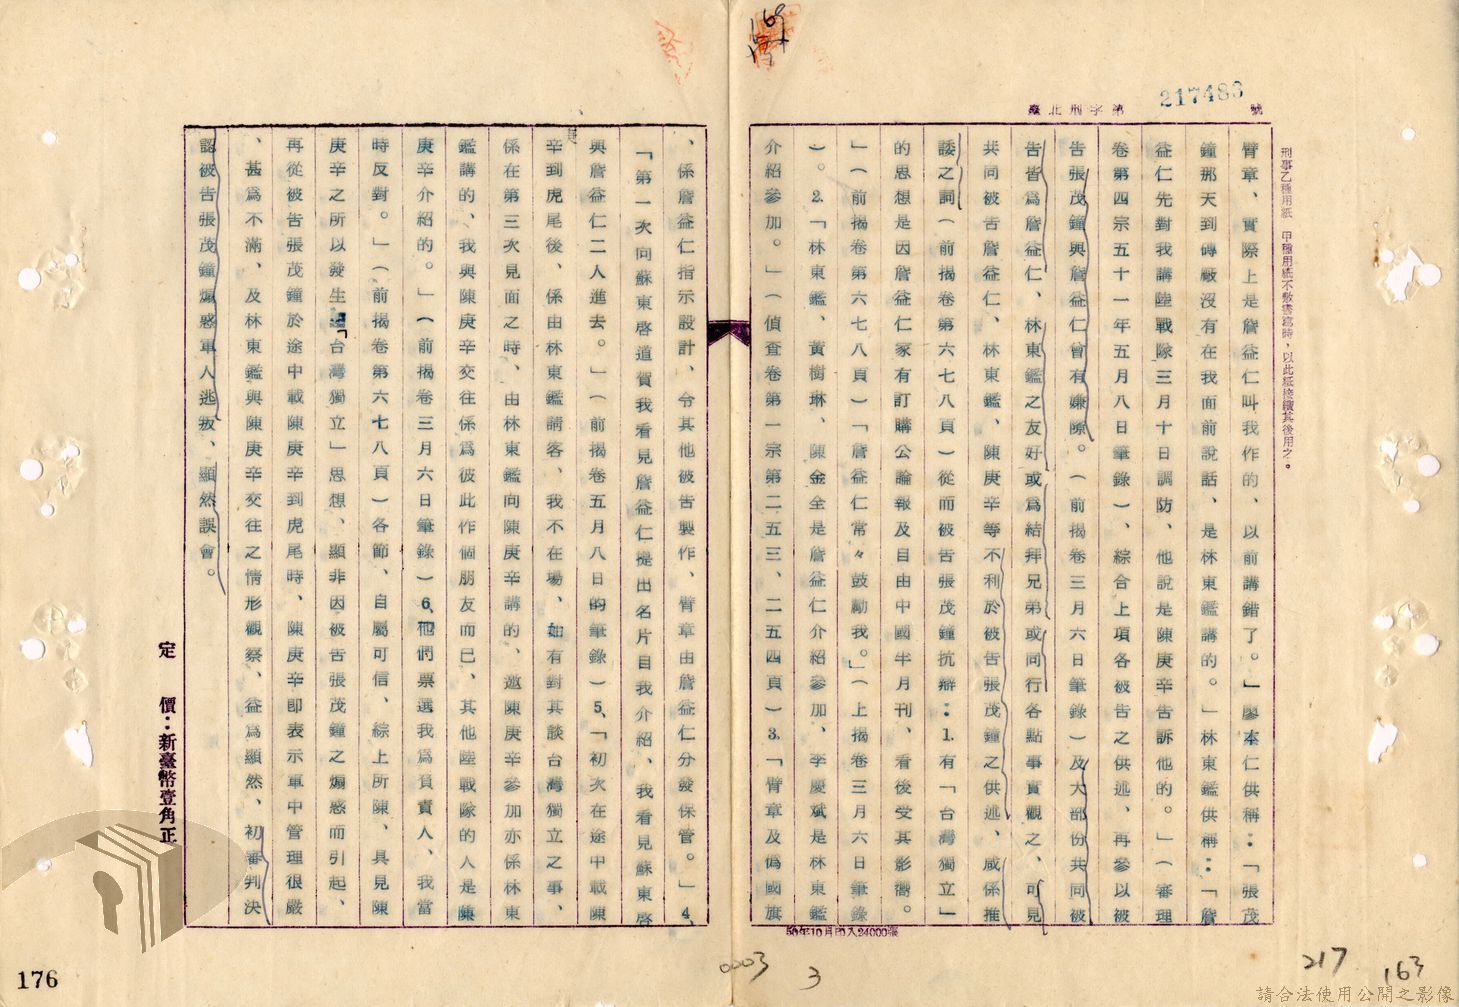 169
臺北刑字第 217483 號
刑事乙種用紙 甲種用紙不敷書寫時,以此紙接續其後用之。
臂章、實際上是詹益仁叫我作的、以前講錯了。」廖本仁供稱:「張茂
鐘那天到磚廠沒有在我面前說話、是林東鑑講的。」林東鑑供稱:「詹
益仁先對我講陸戰隊三月十日調防、他說是陳庚辛告訴他的。」(審理
卷第四宗五十一年五月八日筆錄)、綜合上項各被告之供述、再參以被
告張茂鐘與詹益仁曾有嫌隙。(前揭卷三月六日筆錄)及大部份共同被
告皆為詹益仁、林東鑑之友好或為結拜兄弟或同行各點事實觀之、可見
共同被告詹益仁、林東鑑、陳庚辛等不利於被告張茂鐘之供述、咸係推
諉之詞(前揭卷第六七八頁)從而被告張茂鐘抗辯:1.有「台灣獨立」
的思想是因詹益仁家有訂購公論報及自由中國半月刊、看後受其影響。
」(前揭卷第六七八頁)「詹益仁常々鼓勵我。」(上揭卷三月六日筆錄
)。2.「林東鑑、黃樹琳、陳金全是詹益仁介紹參加、李慶斌是林東鑑
介紹參加。」(偵查卷第一宗第二五三、二五四頁)3.「臂章及偽國旗
50年10月印入24000張
、係詹益仁指示設計、令其他被告製作、臂章由詹益仁分發保管。」4.
「第一次向蘇東啓道賀我看見詹益仁提出名片自我介紹、我看見蘇東啓
與詹益仁二人進去。」(前揭卷五月八日的筆錄)5.「初次在途中載陳
辛到虎尾後、係由林東鑑請客、我不在場、如有對其談台灣獨立之事、
係在第三次見面之時、由林東鑑向陳庚辛講的、邀陳庚辛參加亦係林東
鑑講的、我與陳庚辛交往係為彼此作個朋友而已、其他陸戰隊的人是陳
庚辛介紹的。」(前揭卷三月六日筆錄)6.「他們票選我為負責人、我當
時反對。」(前揭卷第六七八頁)各節、自屬可信、綜上所陳、具見陳
庚辛之所以發生「台灣獨立」思想、顯非因被告張茂鐘之煽惑而引起、
再從被告張茂鐘於途中載陳庚辛到虎尾時、陳庚辛即表示軍中管理很嚴
、甚為不滿、及林東鑑與陳庚辛交往之情形觀察、益為顯然、初審判決
認被告張茂鐘煽惑軍人逃叛、顯然誤會。
定 價:新臺幣壹角正
176
0003
3
217
163
請合法使用公開之影像